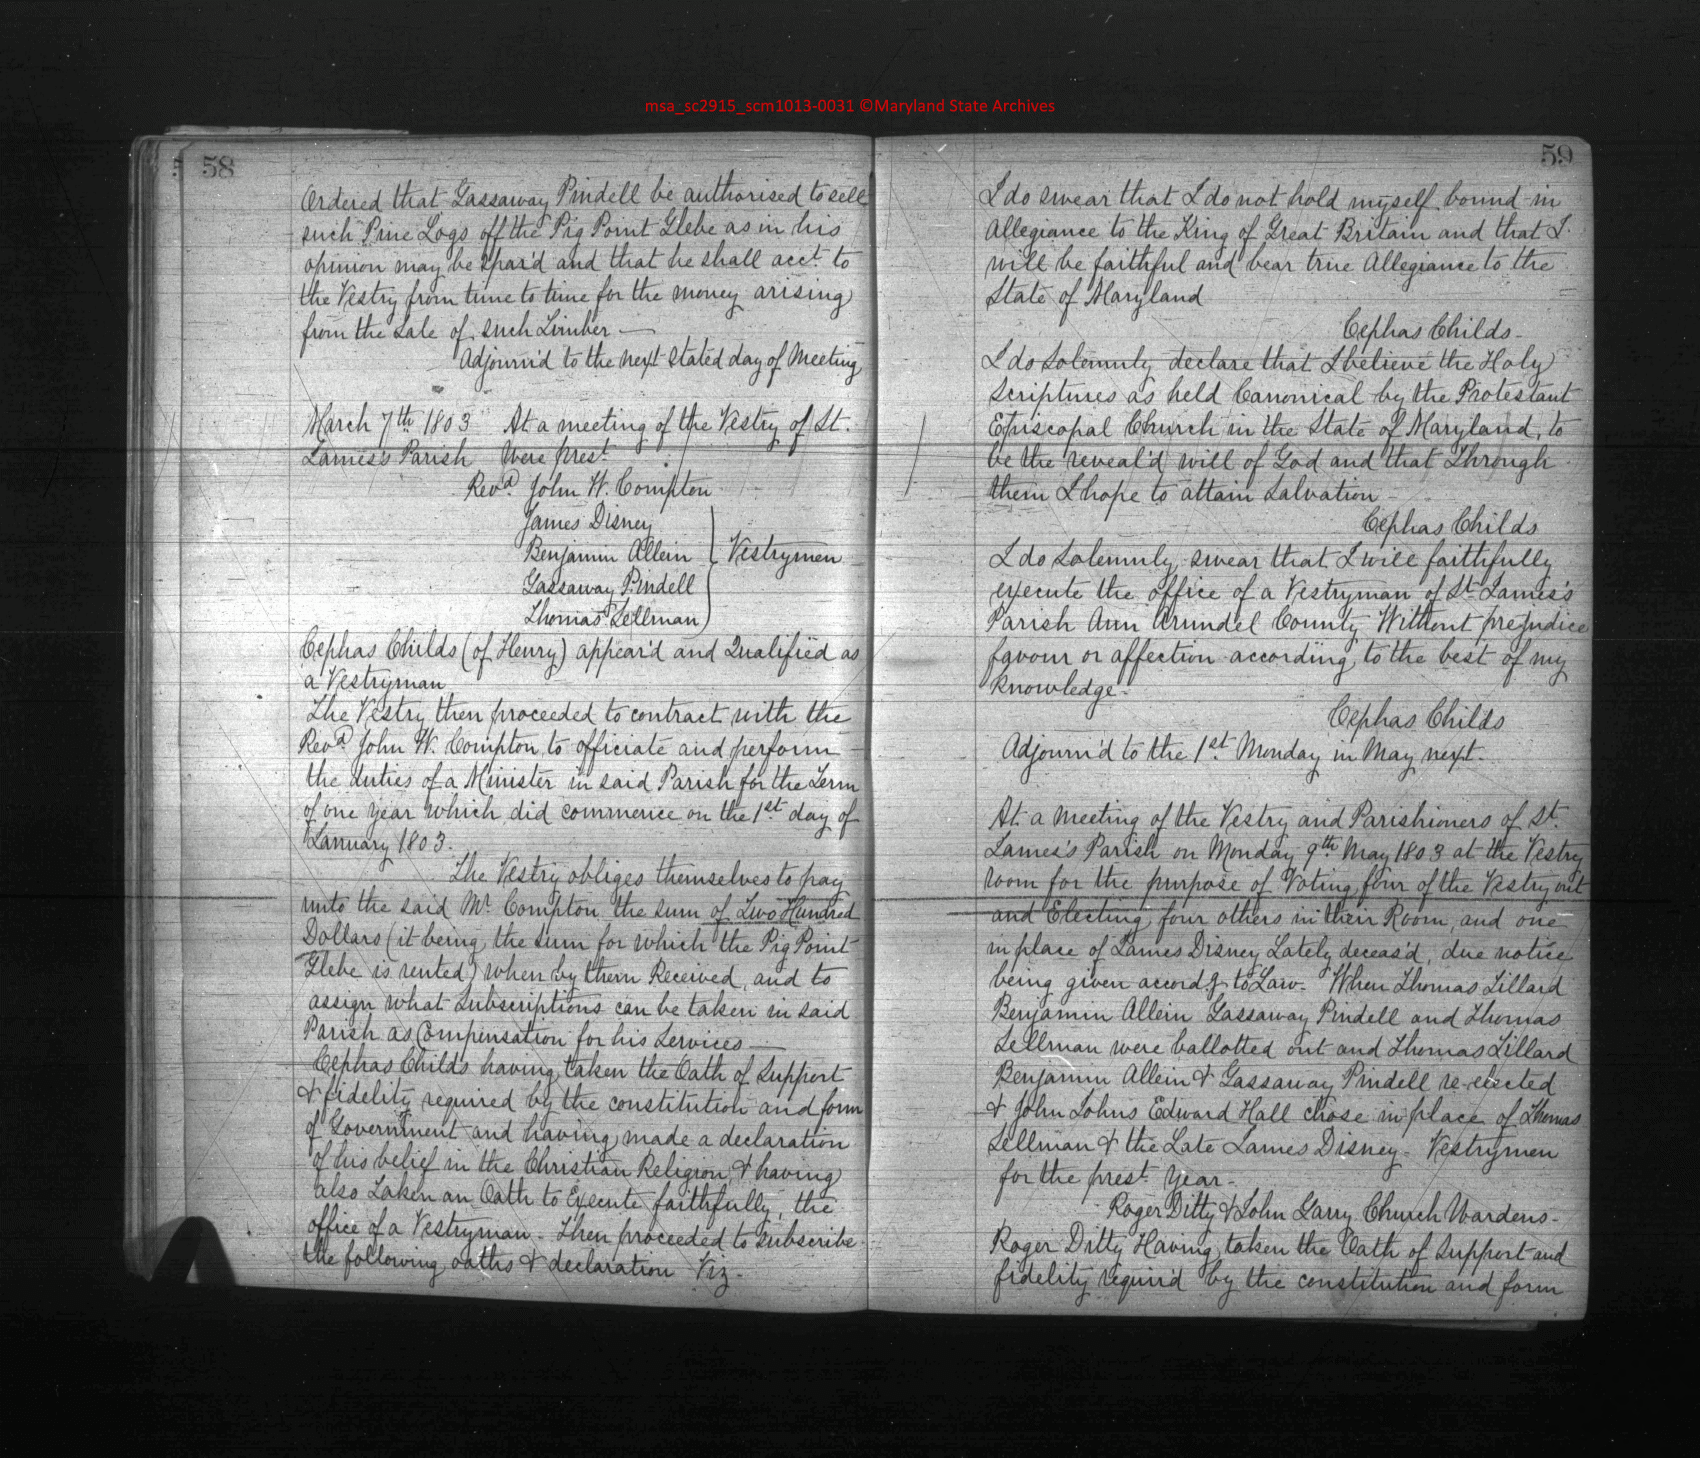 msa_sc2915_scm1013-0031 ©Maryland State Archives
58
Ordered that Gassaway Pindell be authorised to sell
such Pine Logs off the Pig Point Glebe as in his
opinion may be spar'd and that he shall acct. to
the Vestry from time to time for the money arising
from the sale of such Timber —
Adjourn'd to the next stated day of Meeting
March 7th 1803 At a meeting of the Vestry of St.
James's Parish Were prest
Revd. John W. Compton
James Disney
Benjamin Allein } Vestrymen
Gassaway Pindell
Thomas Sellman
Cephas Childs (of Henry) appear'd and Qualified as
a Vestryman
The Vestry then proceeded to contract with the
Revd. John W. Compton to officiate and perform
the duties of a Minister in said Parish for the Term
of one year which did commence on the 1st day of
January 1803.
The Vestry obliges themselves to pay
unto the said Mr. Compton the sum of Two Hundred
Dollars (it being the sum for which the Pig Point
Glebe is rented) when by them Received, and to
assign what Subscriptions can be taken in said
Parish as Compensation for his Services —
Cephas Childs having taken the Oath of Support
& fidelity required by the constitution and form
of Government and having made a declaration
of his belief in the Christian Religion, & having
also Taken an Oath to Execute faithfully, the
office of a Vestryman - Then proceeded to subscribe
the following oaths & declaration Viz -
59
I do swear that I do not hold myself bound in
Allegiance to the King of Great Britain and that I
will be faithful and bear true Allegiance to the
State of Maryland
Cephas Childs -
I do Solemnly declare that I believe the Holy
Scriptures as held Canonical by the Protestant
Episcopal Church in the State of Maryland, to
be the reveal'd will of God and that Through
them I hope to attain Salvation -
Cephas Childs
I do Solemnly swear that I will faithfully
execute the office of a Vestryman of St James's
Parish Ann Arundel County Without prejudice
favour or affection according to the best of my
Knowledge -
Cephas Childs
Adjourn'd to the 1st. Monday in May next.
At a Meeting of the Vestry and Parishioners of St.
James's Parish on Monday 9th May 1803 at the Vestry
room for the purpose of Voting four of the Vestry out
and Electing four others in their Room, and one
in place of James Disney Lately deceas'd, due notice
being given accordg to Law - When Thomas Tillard
Benjamin Allein Gassaway Pindell and Thomas
Sellman were ballotted out and Thomas Tillard
Benjamin Allein & Gassaway Pindell re-elected
& John Johns Edward Hall chose in place of Thomas
Sellman & the Late James Disney - Vestrymen
for the prest. Year -
Roger Ditty & John Garry Church Wardens -
Roger Ditty Having taken the Oath of Support and
fidelity requir'd by the constitution and form